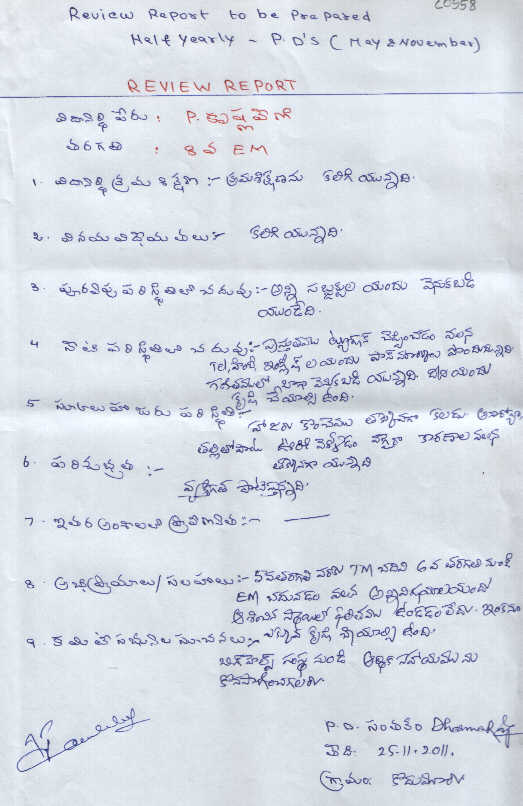 C0558
Review Report to be Prepared
Half Yearly - P.D'S (May & November)
REVIEW REPORT
విద్యార్థి పేరు : P. కృష్ణవేణి
తరగతి : 8 వ EM
1. విద్యార్థి క్రమ శిక్షణ :- క్రమశిక్షణను కలిగి యున్నది.
2. వినయ విధేయతలు :- కలిగి యున్నది.
3. పూరవపు పరిస్థితిలో చదువు :- అన్ని సబ్జక్టుల యందు వెనుకబడి
యుండేది.
4 నేటి పరిస్థితిలో చదువు :- ప్రస్తుతము ట్యూషన్ చెప్పించడం వలన
Tel, హింది ఇంగ్లీష్ ల యందు పాస్ మార్కులు పొందుచున్నది
గణితములో బాగా వెనుకబడి యున్నది. దీని యందు
కృషి చేయాల్సి ఉంది.
5 స్కూలు హాజరు పరిస్థితి :-
హాజరు కొంచెము తక్కువగా కలదు
తల్లితోపాటు ఊరికి వెళ్ళడం వగైరా కారణాల వలన
తక్కువగా యున్నది
6. పరిశుభ్రత :-
వ్యక్తిగత పాటిస్తున్నది.
7. ఇతర అంశాలలో ప్రావీణ్యత :- —
8. అభిప్రాయాలు / సలహాలు :- 5వ తరగతి వరకు TM చదివి 6వ తరగతి నుండి
EM చదువడం వలన అన్ని విషయాలయందు
ఆశించిన స్థాయిలో ఫలితము ఉండడం లేదు. ఇంకను
ఎక్కువ కృషి చేయాల్సి ఉంది.
9. కమిటీ సభ్యుల సూచనలు :-
సంస్థ నుండి ఆర్థిక సహాయమును
కొనసాగించగలరు.
P.D. సంతకం
తేది: 25-11-2011.
గ్రామం: